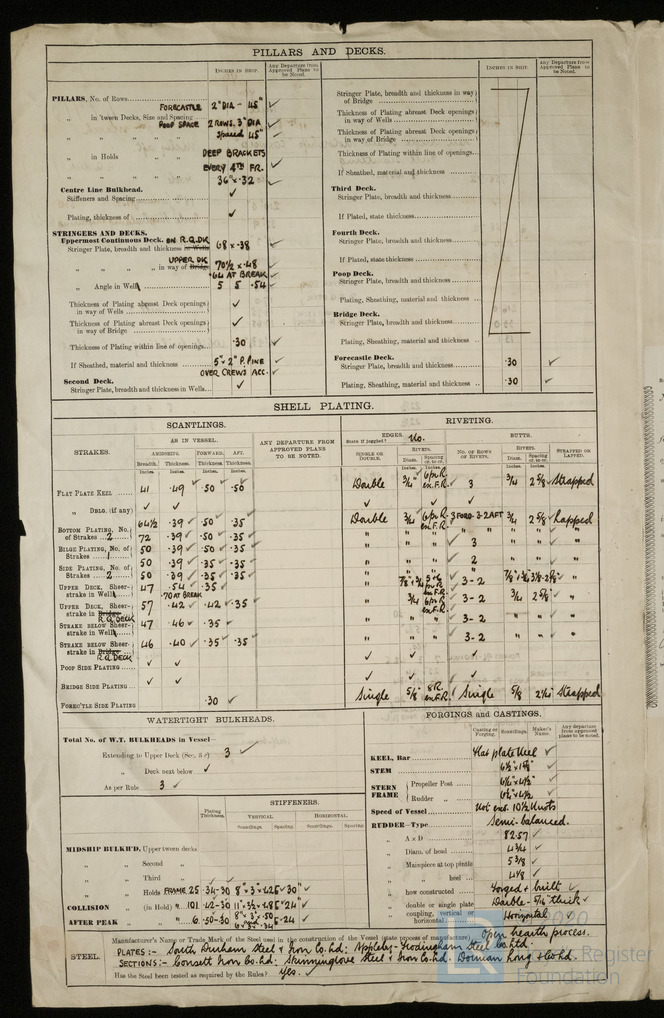 PILLARS AND DECKS.
INCHES IN SHIP.
Any Departure from Approved Plans to be Noted.
PILLARS, No. of Rows
FORECASTLE 2" DIA - 45"
" in 'tween Decks, Size and Spacing
POOP SPACE 2 ROWS. 3" DIA
Spaced 45"
" in Holds " " DEEP BRACKETS
EVERY 4TH FR.
36" x .32
Centre Line Bulkhead.
Stiffeners and Spacing
Plating, thickness of
STRINGERS AND DECKS.
Uppermost Continuous Deck. ON R.Q.DK
Stringer Plate, breadth and thickness in Wells 68 x .38
UPPER DK
" " " " in way of Bridge 70½ x .48
.64 AT BREAK
" Angle in Well 5 5 .54
Thickness of Plating abreast Deck openings in way of Wells
Thickness of Plating abreast Deck openings in way of Bridge
Thickness of Plating within line of openings .30
If Sheathed, material and thickness 5" x 2" P. PINE
OVER CREWS ACC.
Second Deck.
Stringer Plate, breadth and thickness in Wells
INCHES IN SHIP.
Any Departure from Approved Plans to be Noted.
Stringer Plate, breadth and thickness in way of Bridge
Thickness of Plating abreast Deck openings in way of Wells
Thickness of Plating abreast Deck openings in way of Bridge
Thickness of Plating within line of openings
If Sheathed, material and thickness
Third Deck.
Stringer Plate, breadth and thickness
If Plated, state thickness
Fourth Deck.
Stringer Plate, breadth and thickness
If Plated, state thickness
Poop Deck.
Stringer Plate, breadth and thickness
Plating, Sheathing, material and thickness
Bridge Deck.
Stringer Plate, breadth and thickness
Plating, Sheathing, material and thickness
Forecastle Deck.
Stringer Plate, breadth and thickness .30
Plating, Sheathing, material and thickness .30
SHELL PLATING.
SCANTLINGS.
RIVETING.
STRAKES.
AS IN VESSEL.
AMIDSHIPS. FORWARD. AFT.
Breadth. Thickness. Thickness. Thickness.
Inches. Inches. Inches. Inches.
ANY DEPARTURE FROM APPROVED PLANS TO BE NOTED.
EDGES.
State if joggled? No.
BUTTS.
SINGLE OR DOUBLE.
RIVETS.
Diam. Spacing cr. to cr.
NO. OF ROWS OF RIVETS.
RIVETS.
Diam. Spacing cr. to cr.
STRAPPED OR LAPPED.
FLAT PLATE KEEL 41 .49 .50 .50 Double ¾" 6 per R. ex. F.R. 3 ¾ 2⅝ Strapped
" DBLG. (if any)
BOTTOM PLATING, No. of Strakes 2 64½ .39 .50 .35 Double ¾ 6 per R. ex. F.R. 3 FORD. 3-2 AFT ¾ 2⅝ Lapped
72 .39 .50 .35 " " " 3 " " "
BILGE PLATING, No. of Strakes 1 50 .39 .50 .35
SIDE PLATING, No. of Strakes 2 50 .39 .35 .35 " " " 2 " " "
50 .39 .35 .35
UPPER DECK, Sheerstrake in Well 47 .54 .35 3-2
.70 AT BREAK
UPPER DECK, Sheerstrake in Bridge R.Q.DECK 57 .42 .42 .35 " ¾ 6 per R. ex. F.R. 3-2 ¾ 2⅝ "
STRAKE BELOW Sheerstrake in Well 47 .46 .35 " " " 3-2 " " "
STRAKE BELOW Sheerstrake in Bridge R.Q.DECK 46 .40 .35 .35 " " " 3-2 " " "
POOP SIDE PLATING
BRIDGE SIDE PLATING
FORE'CTLE SIDE PLATING .30 Single ⅝ 8 R. ex. F.R. Single ⅝ Strapped
WATERTIGHT BULKHEADS.
Total No. of W.T. BULKHEADS in Vessel—
Extending to Upper Deck 3
" Deck next below
As per Rule 3
Plating Thickness.
STIFFENERS.
VERTICAL. HORIZONTAL.
Scantlings. Spacing. Scantlings. Spacing.
MIDSHIP BULKH'D, Upper 'tween decks
" " Second "
" " Third "
" " Holds FRAME 25 .34-30 8" x 3" x .425 30"
COLLISION " (in Hold) " 101 .42-30 24"
AFTER PEAK " " 6 .50-30 24
FORGINGS and CASTINGS.
Casting or Forging. Scantlings. Maker's Name. Any departure from approved plans to be noted.
KEEL, Bar Flat plate keel
STEM
STERN FRAME
Propeller Post
Rudder "
Speed of Vessel Not exc. 10½ Knots
RUDDER—Type Semi-balanced.
" A x D 82.57
" Diam. of head 4¾
" Mainpiece at top pintle 5⅜
" " heel 4⅛
" how constructed Forged & built
" double or single plate Double - 5/16" thick
" coupling, vertical or horizontal Horizontal
STEEL.
Manufacturer's Name or Trade Mark of the Steel used in the construction of the Vessel (state process of manufacture) Open hearth process.
PLATES :- South Durham Steel & Iron Co. Ltd: Appleby-Frodingham Steel Co. Ltd.
SECTIONS :- Consett Iron Co. Ltd: Skinningrove Steel & Iron Co. Ltd. Dorman Long & Co. Ltd.
Has the Steel been tested as required by the Rules? Yes.
LR
2020
Register
Foundation